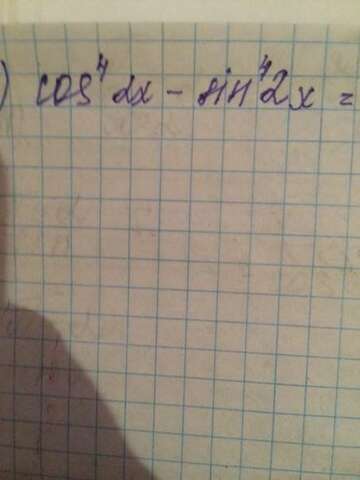 ) cos⁴ 2x - sin⁴ 2x =